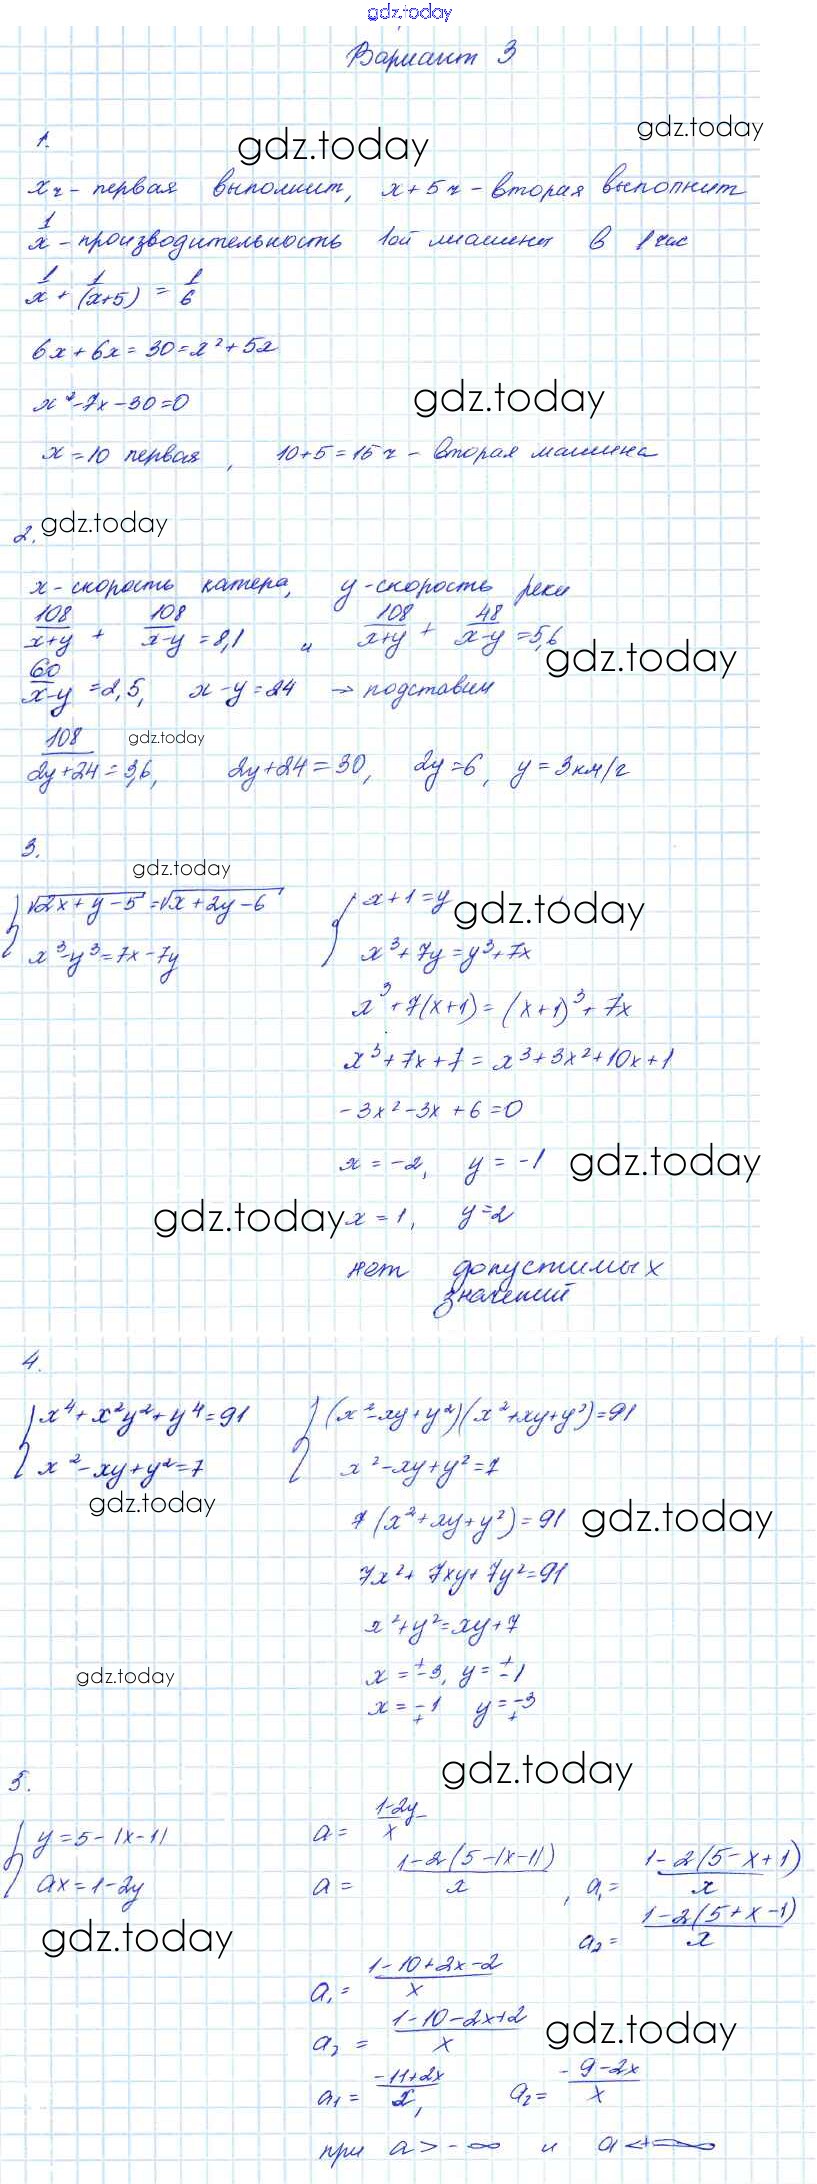 gdz.today
Вариант 3
1.
gdz.today
gdz.today
x ч - первая выполнит, x+5 ч - вторая выполнит
1/x - производительность 1ой машины в 1 час
1/x + 1/(x+5) = 1/6
6x+6x=30=x²+5x
x²-7x-30=0
gdz.today
x=10 первая, 10+5=15 ч - вторая машина
2.
gdz.today
x - скорость катера, y - скорость реки
108/(x+y) + 108/(x-y) = 8,1 и 108/(x+y) + 48/(x-y) = 5,6
gdz.today
60/(x-y) = 2,5, x-y=24 → подставим
gdz.today
108/(2y+24) = 3,6, 2y+24=30, 2y=6, y=3км/г
3.
gdz.today
{ √2x+y-5 = √x+2y-6 { x+1=y
gdz.today
x³-y³=7x-7y x³+7y=y³+7x
x³+7(x+1)=(x+1)³+7x
x³+7x+7=x³+3x²+10x+1
-3x²-3x+6=0
x=-2, y=-1
gdz.today
gdz.today
x=1, y=2
нет допустимых
значений
4.
{ x⁴+x²y²+y⁴=91 { (x²-xy+y²)(x²+xy+y²)=91
x²-xy+y²=7 x²-xy+y²=7
gdz.today
7(x²+xy+y²)=91
gdz.today
7x²+7xy+7y²=91
x²+y²=xy+7
gdz.today
x=±3, y=±1
x=∓1 y=∓3
gdz.today
5.
{ y=5-|x-1| a=(1-2y)/x
ax=1-2y a=(1-2(5-|x-1|))/x, a₁=(1-2(5-x+1))/x
gdz.today
a₂=(1-2(5+x-1))/x
a₁=(1-10+2x-2)/x
a₂=(1-10-2x+2)/x
gdz.today
a₁=(-11+2x)/x, a₂=(-9-2x)/x
при a>-∞ и a<+∞